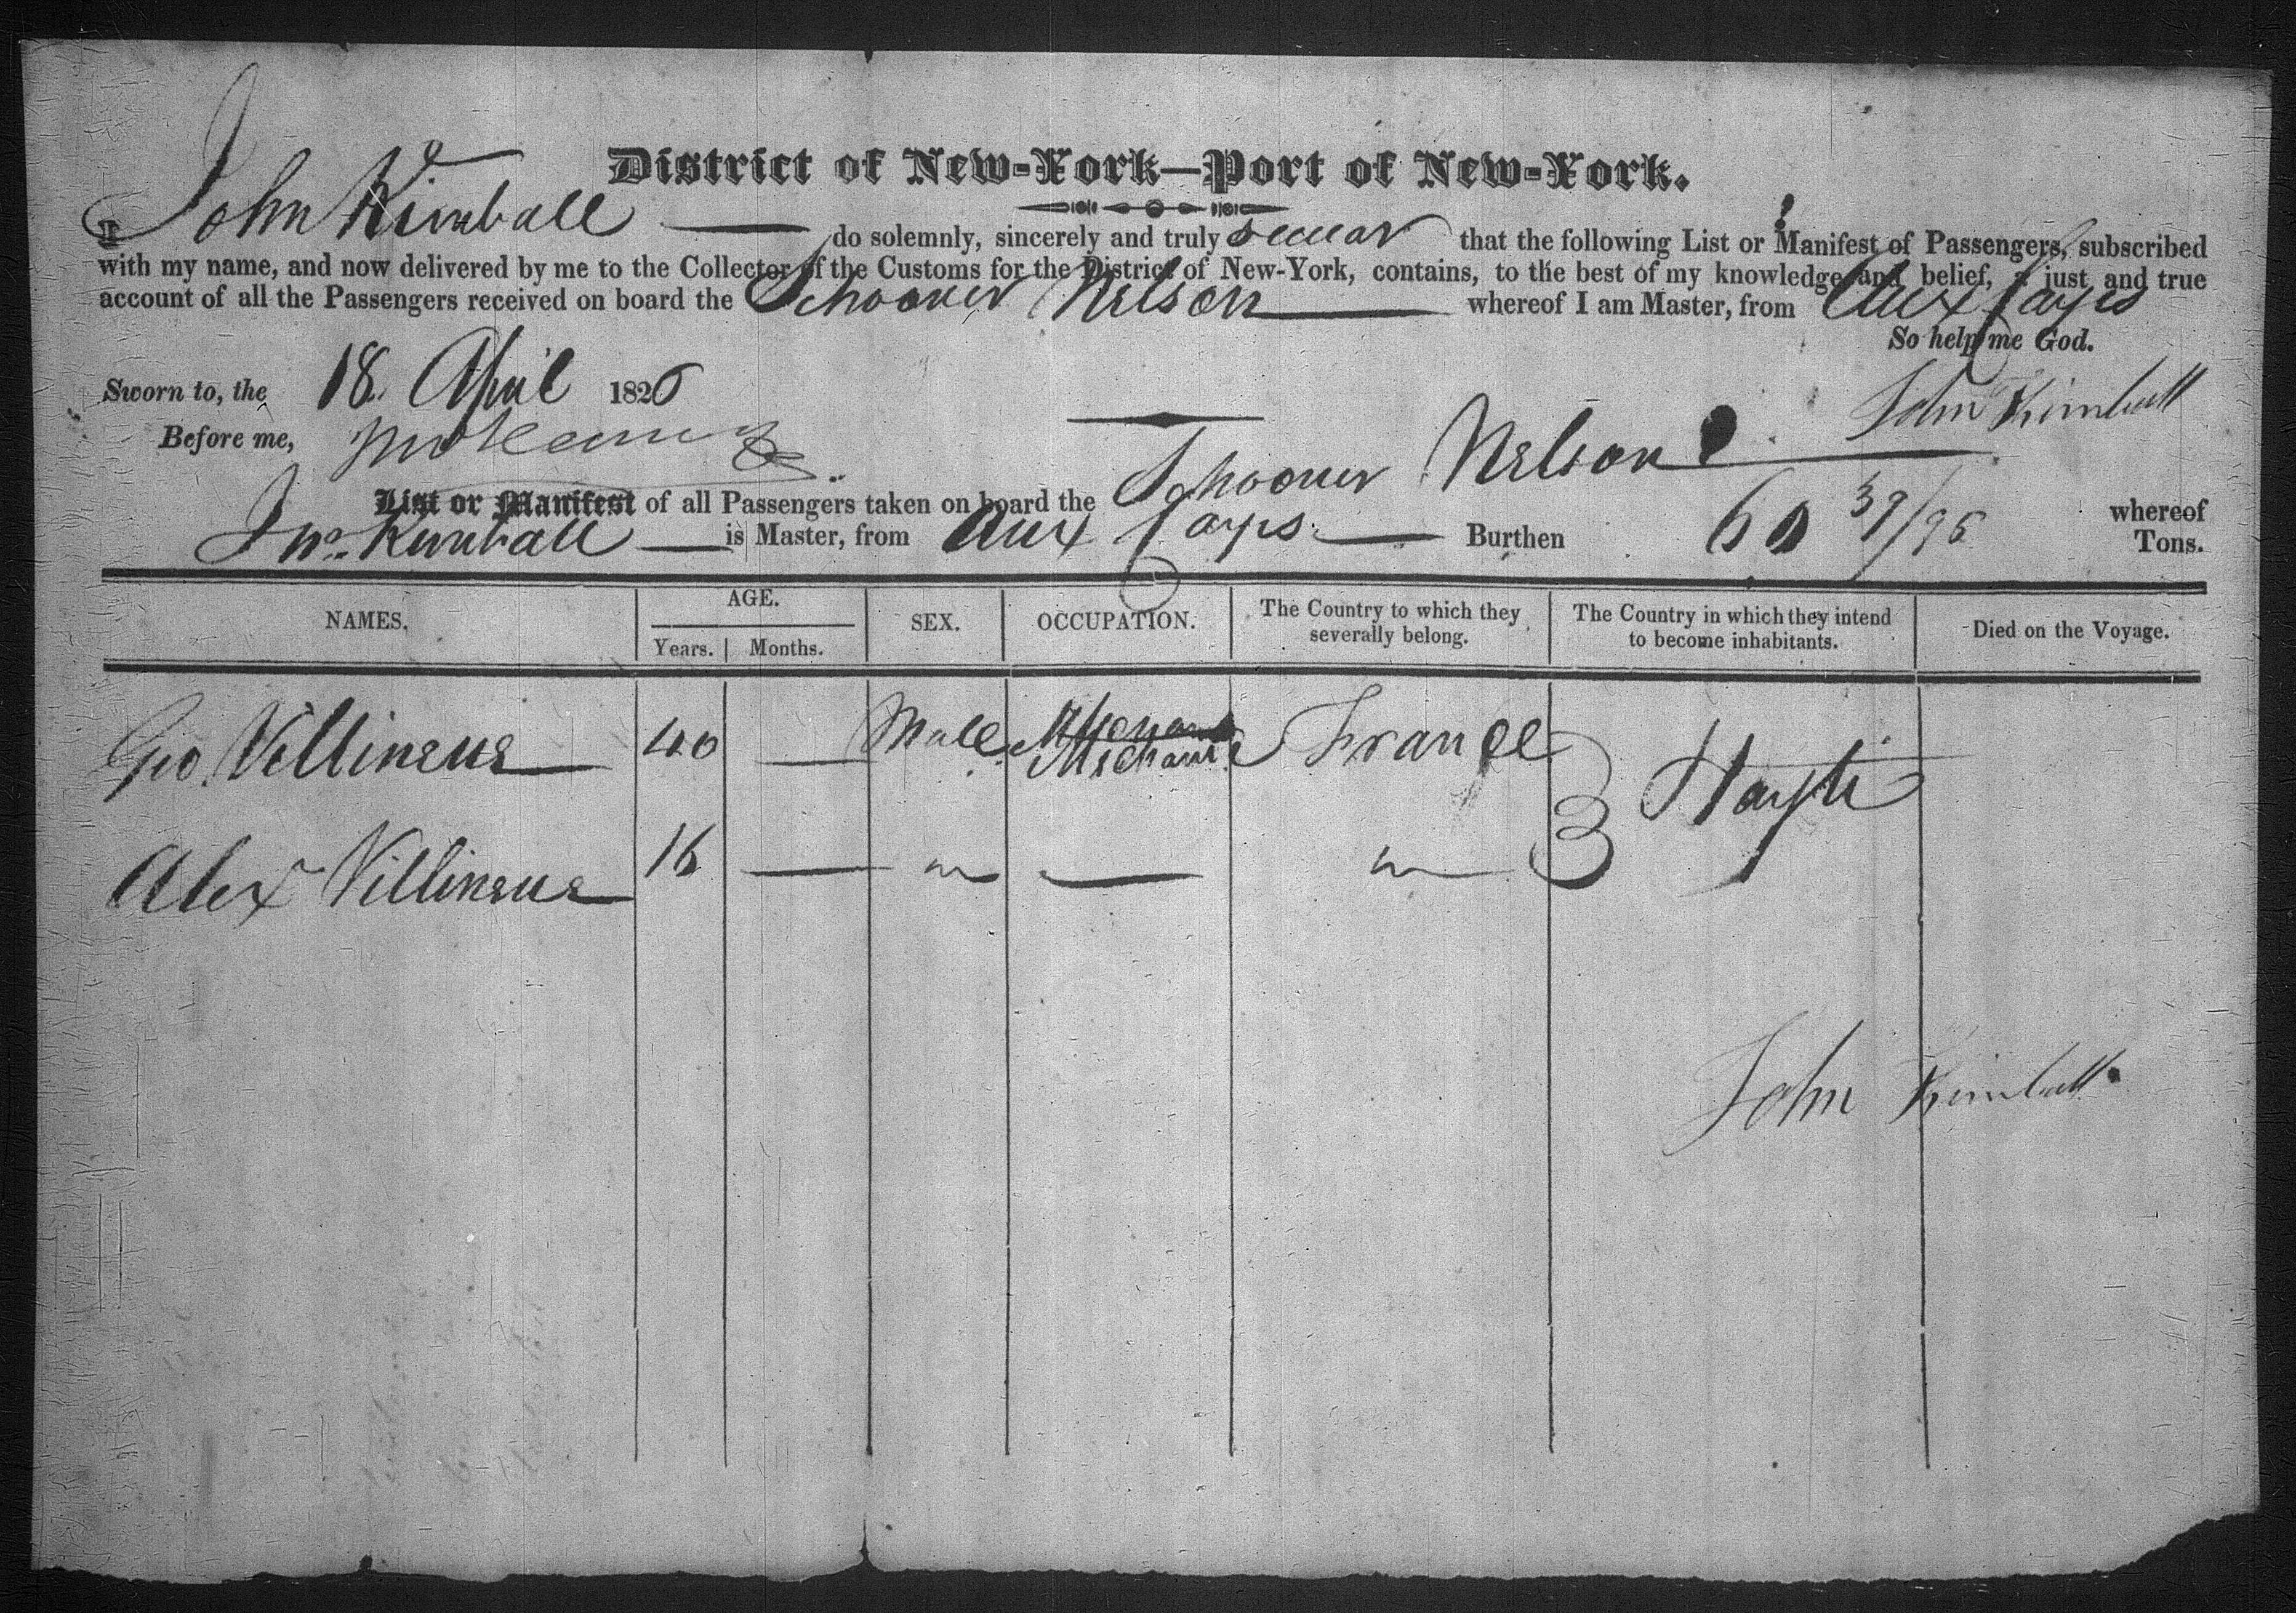 District of New-York—Port of New-York.
I John Kimball do solemnly, sincerely and truly swear that the following List or Manifest of Passengers, subscribed
with my name, and now delivered by me to the Collector of the Customs for the District of New-York, contains, to the best of my knowledge and belief, a just and true
account of all the Passengers received on board the Schooner Nelson whereof I am Master, from Aux Cayes
So help me God.
Sworn to, the 18 April 1826
John Kimball
Before me,
List or Manifest of all Passengers taken on board the Schooner Nelson whereof
Jno. Kimball is Master, from Aux Cayes Burthen 60 39/95 Tons.
NAMES. AGE. SEX. OCCUPATION. The Country to which they severally belong. The Country in which they intend to become inhabitants. Died on the Voyage.
Years. Months.
Geo. Villineue 40 — Male Mechanic France Hayti
Alex Villineue 16 — " — "
John Kimball